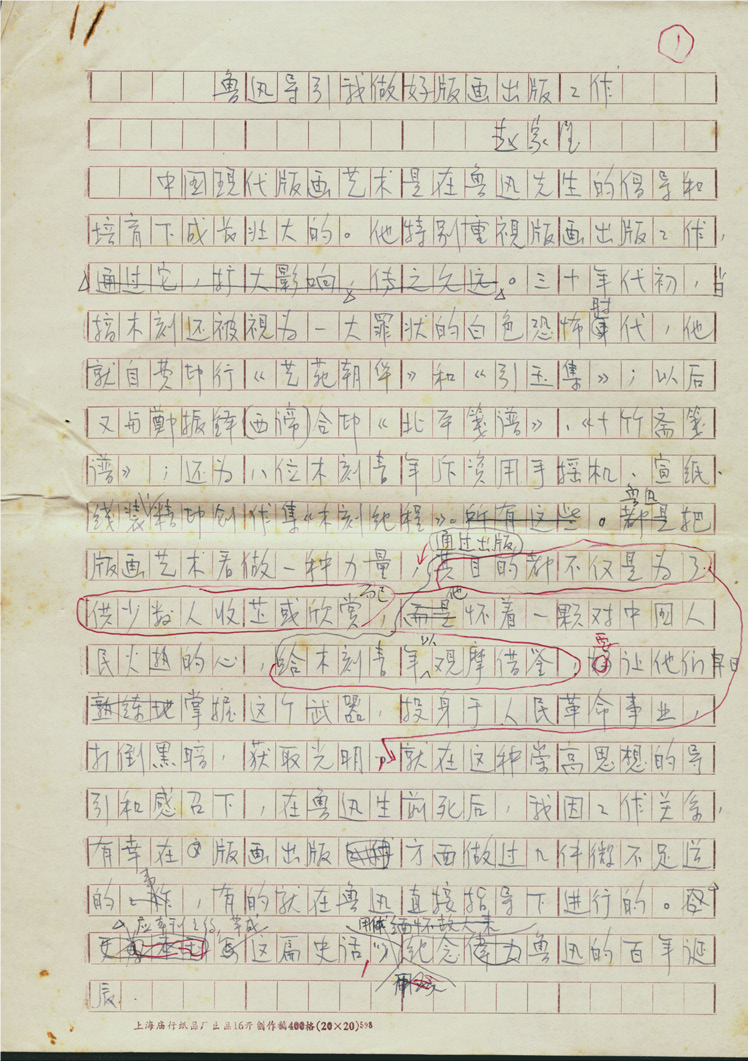 1
鲁迅导引我做好版画出版工作
赵家璧
中国现代版画艺术是在鲁迅先生的倡导和
培育下成长壮大的。他特别重视版画出版工作，
通过它，扩大影响，传之久远。三十年代初，当
搞木刻还被视为一大罪状的白色恐怖时代，他
就自费印行《艺苑朝华》和《引玉集》；以后
又与郑振铎(西谛)合印《北平笺谱》、《十竹斋笺
谱》；还为八位木刻青年斥资用手摇机、宣纸、
线装精印创作集《木刻纪程》。所有这些。鲁迅都是把
通过出版
版画艺术看做一种力量，其目的都不仅是为了
供少数人收芷或欣赏，而已
而是他怀着一颗对中国人
民火热的心，给木刻青年以观摩借鉴，要让他们早日
熟练地掌握这个武器，投身于人民革命事业，
打倒黑暗，获取光明。就在这种崇高思想的导
引和感召下，在鲁迅生前死后，我因工作关系，
有幸在版画出版方面做过几件微不足道
的事，有的就在鲁迅直接指导下进行的。
应本刊之约，草成
缅怀故人来
写这篇史话，纪念伟大鲁迅的百年诞
辰.
上海庙行纸品厂出品16开制作稿400格(20×20)598